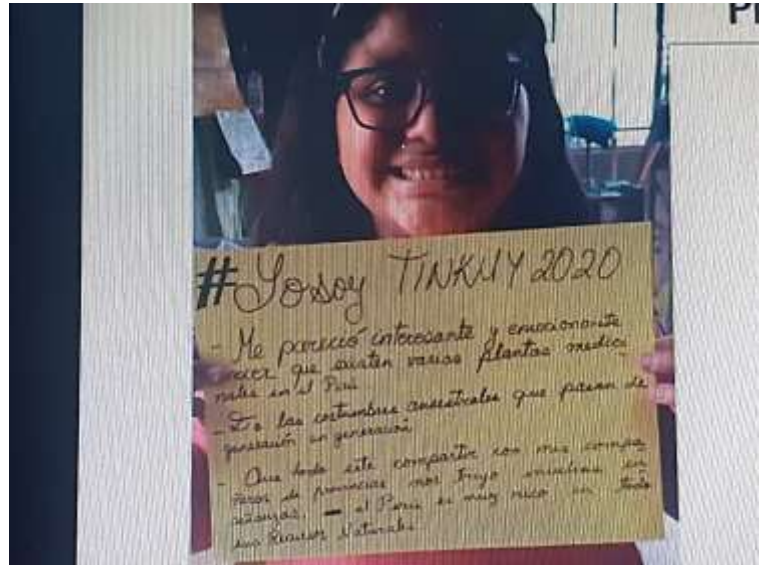 P
#Yo soy TINKUY 2020
- Me pareció interesante y emocionante
que existen varias plantas medici
nales en el Perú
- las costumbres ancestrales que pasan de
generación en generación
- Que todo este compartir con mis compa
ñeros de provincias nos trajo muchas en
señanzas, - el Perú es muy rico en todo
sus Recursos Naturales